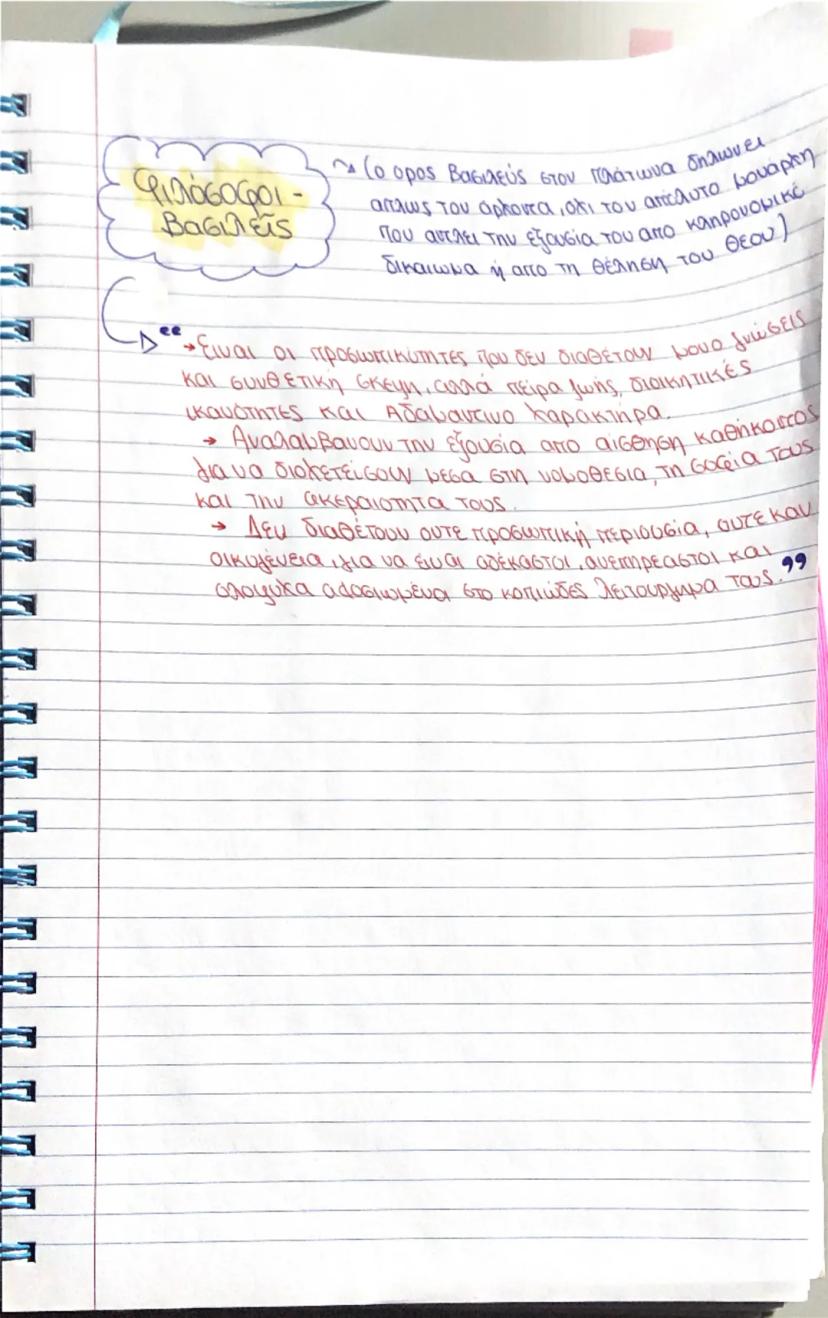 Φιλόσοφοι -
Βασιλεῖς
(ο ορος Βασιλεύς στον Πλάτωνα δηλωνει
απλως τον αρχοντα, οχι τον απόλυτο μονάρχη
που αντλει την εξουσια του απο κληρονομικό
δικαιωμα ή απο τη θέληση του Θεου)
“ → Ειναι οι προσωπικότητες που δεν διαθέτουν μονο γνώσεις
και συνθετική σκεψη, αλλά πείρα ζωής, διοικητικές
ικανότητες και Αδαμαντινο χαρακτήρα.
→ Αναλαμβανουν την εξουσια απο αισθηση καθήκοντος
για να διοχετεύσουν μεσα στη νομοθεσια, τη σοφία τους
και την ακεραιοτητα τους.
→ Δεν διαθέτουν ουτε προσωπική περιουσια, ουτε καν
οικογένεια, για να ειναι αδέκαστοι, ανεπηρεαστοι και
ολοψυχα αφοσιωμένα στο κοπιώδες λειτουργημα τους. ”